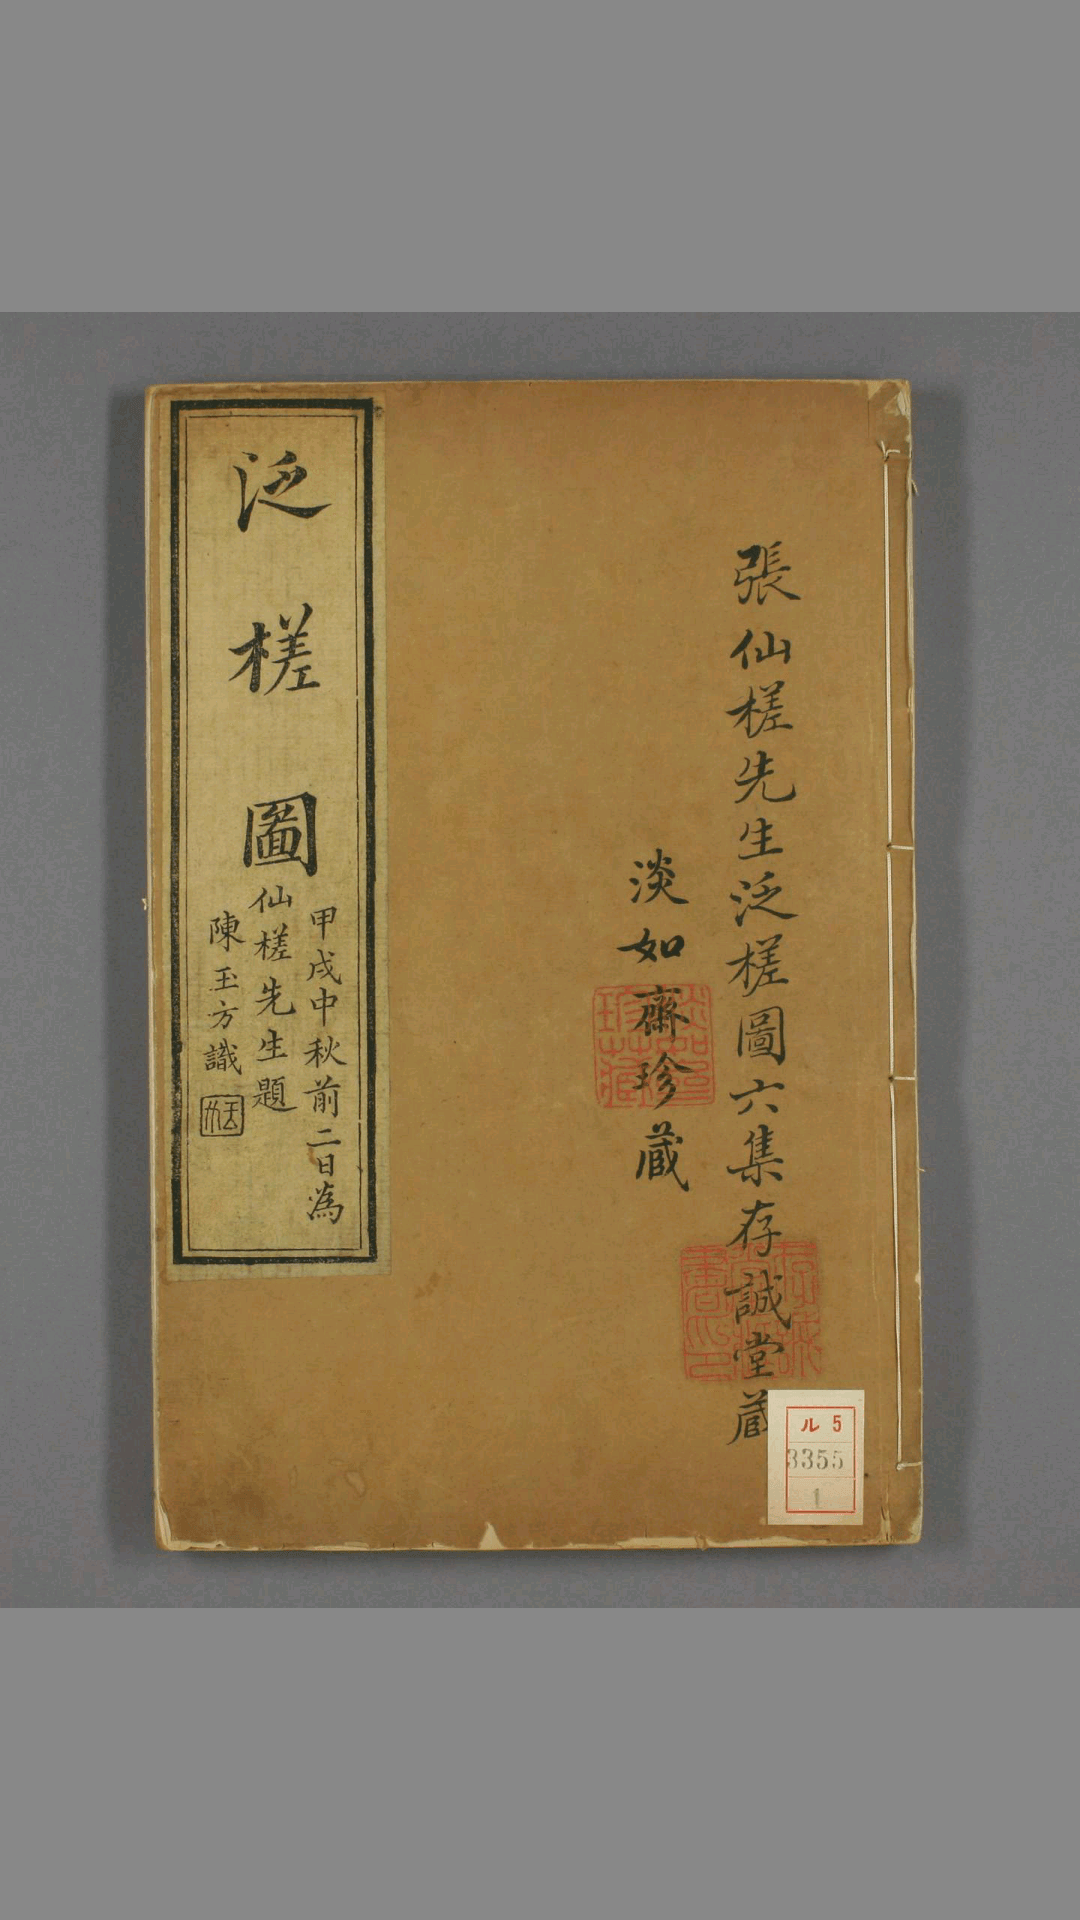 張仙槎先生泛槎圖六集存誠堂蔵
淡如齋珍蔵
泛槎圖
甲戌中秋前二日為
仙槎先生題
陳玉方識
ル 5
3355
1